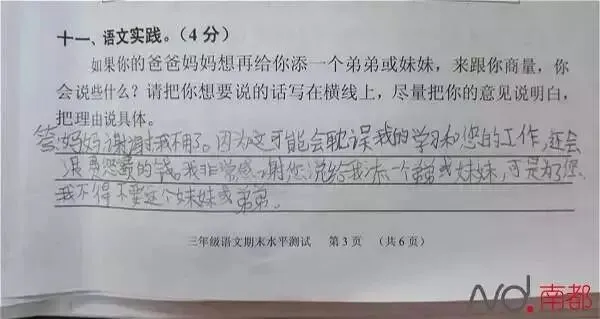 十一、语文实践。(4分)
如果你的爸爸妈妈想再给你添一个弟弟或妹妹,来跟你商量,你
会说些什么?请把你想要说的话写在横线上,尽量把你的意见说明白,
把理由说具体。
答:妈妈谢谢我不用了。因为这可能会耽误我的学习和您的工作,还会
浪费您的钱。我非常感谢您说给我添一个弟弟或妹妹,可是为了您
我不得不要这个妹妹或弟弟。
三年级语文期末水平测试 第3页 (共6页)
nd.南都